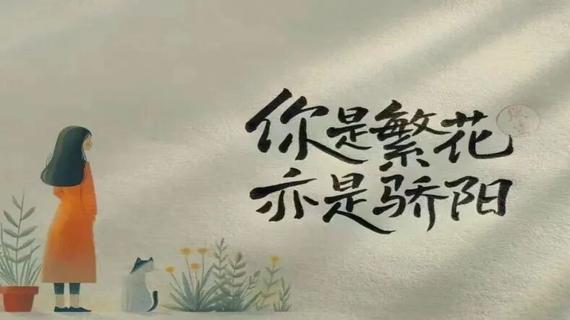 你是繁花
亦是骄阳